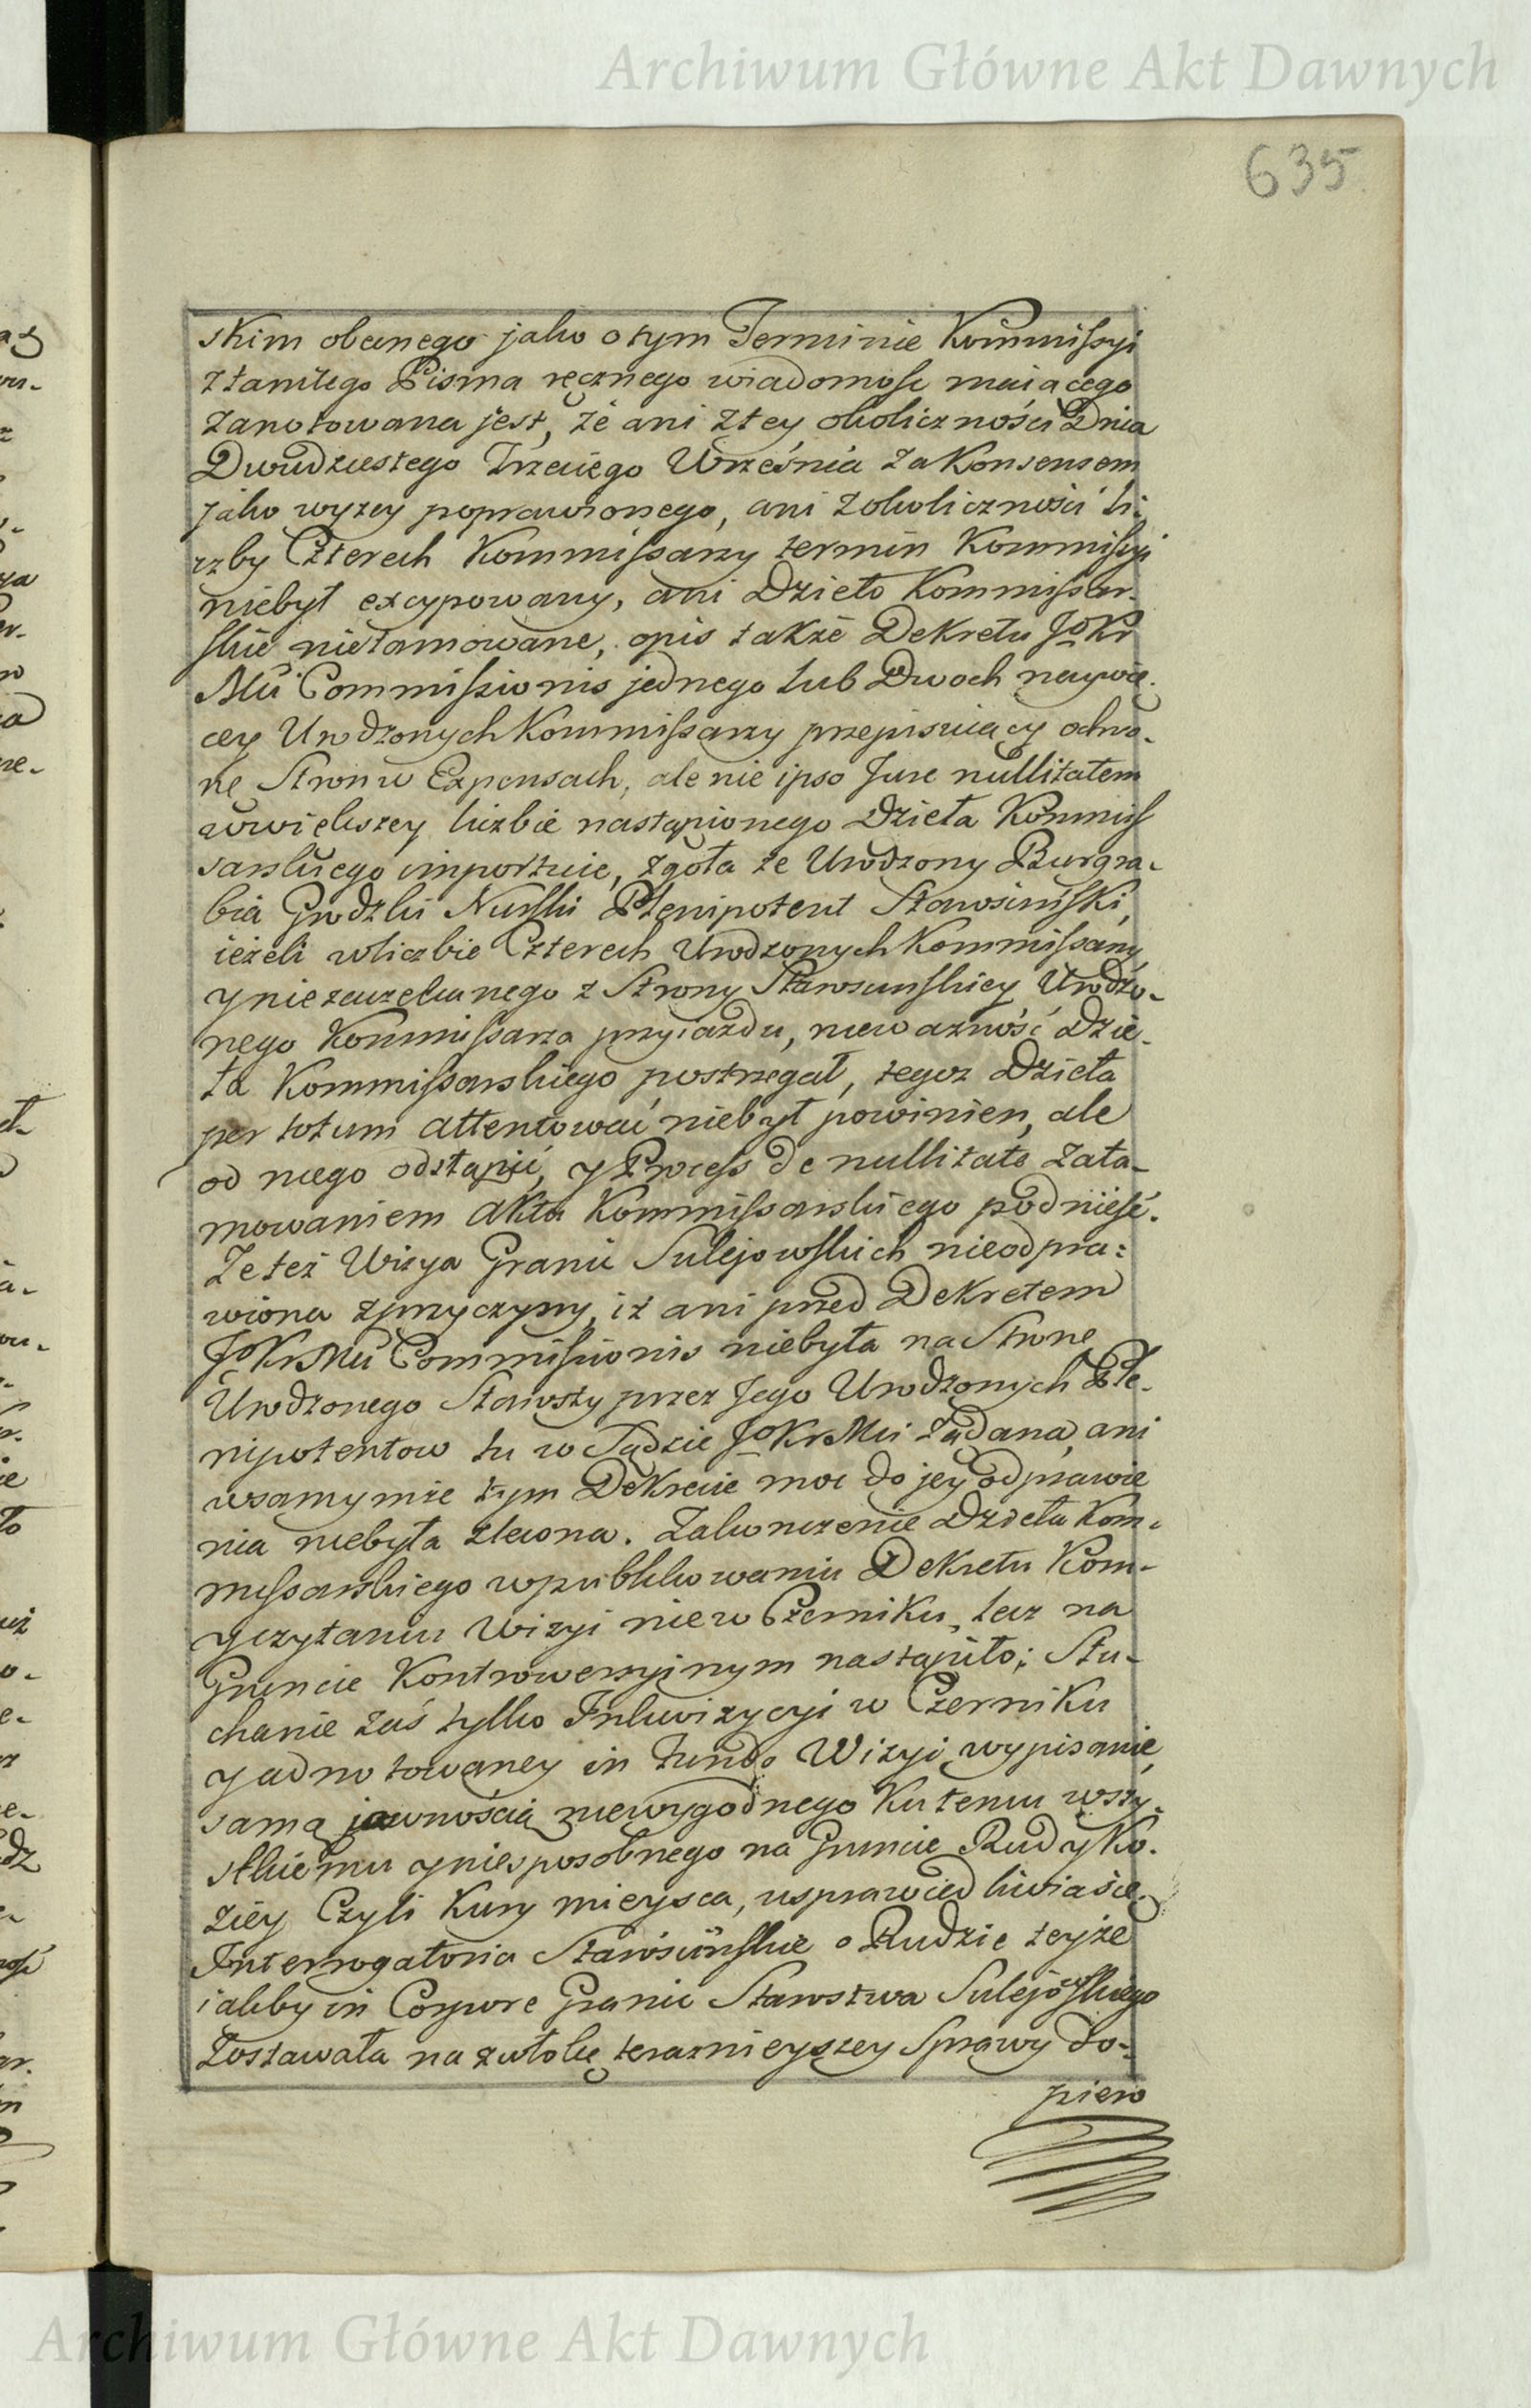 Archiwum Główne Akt Dawnych
635
skim obecnego jako o tym Terminie Kommissyi
z tamtego Pisma ręcznego wiadomość maiącego
zanotowana jest, że ani z tey okoliczności Dnia
Dwudziestego Trzeciego Września za Konsensem
jako wyzey poprawionego, ani z okoliczności li-
czby Czterech Kommissarzy termin Kommissyi
niebył excypowany, ani Dzieło Kommissar-
skie nietamowane, opis także Dekretu JoKr
Mci Commissionis jednego lub Dwoch naywie-
cey Urodzonych Kommissarzy przepisuiący ochra-
nę Stron w Expensach, ale nie ipso Jure nullitatem
w wiekszey liczbie nastąpionego Dzieła Kommis
sarskiego importuie, zgoła ze Urodzony Burgra-
bia Grodzki Nurski Plenipotent Starościński,
ieżeli w liczbie Czterech Urodzonych Kommissarzy
y niezaczekanego z Strony Starościńskiey Urodzo-
nego Kommissarza przyiazdu, nieważność Dzie-
ła Kommissarskiego postrzegał, tegoz Dzieła
per totum attentować niebył powinien, ale
od niego odstąpić, y Process de nullitate zata-
mowaniem Aktu Kommissarskiego podnieść.
Ze też Wizya Granic Sulejowskich nieodpra-
wiona z przyczyny, iż ani przed Dekretem
JoKrMci Commissionis niebyła na Stronę
Urodzonego Starosty przez Jego Urodzonych Ple-
nipotentow tu w Sądzie JoKrMci żądana, ani
w samymże tym Dekrecie moc do jey odprawie
nia niebyła zlecona. Zakonczenie Dzieła Kom-
missarskiego w publikowaniu Dekretu Kom-
y czytaniu Wizyi nie w Czerniku, lecz na
Gruncie Kontrowersyinym nastąpiło; Słu-
chanie zaś tylko Inkwizycyi w Czerniku
y adnotowaney in fundo Wizyi wypisanie,
samą jawnością niewygodnego Ku temu wszy-
stkiemu y niesposobnego na Gruncie Rudy Ko-
ziey Czyli Kury mieysca, usprawiedliwia się.
Interrogatoria Starościńskie o Rudzie teyże
iakby in Corpore Granic Starostwa Sulejoskiego
zostawała na zwłokę teraznieyszey Sprawy do-
piero
Archiwum Główne Akt Dawnych